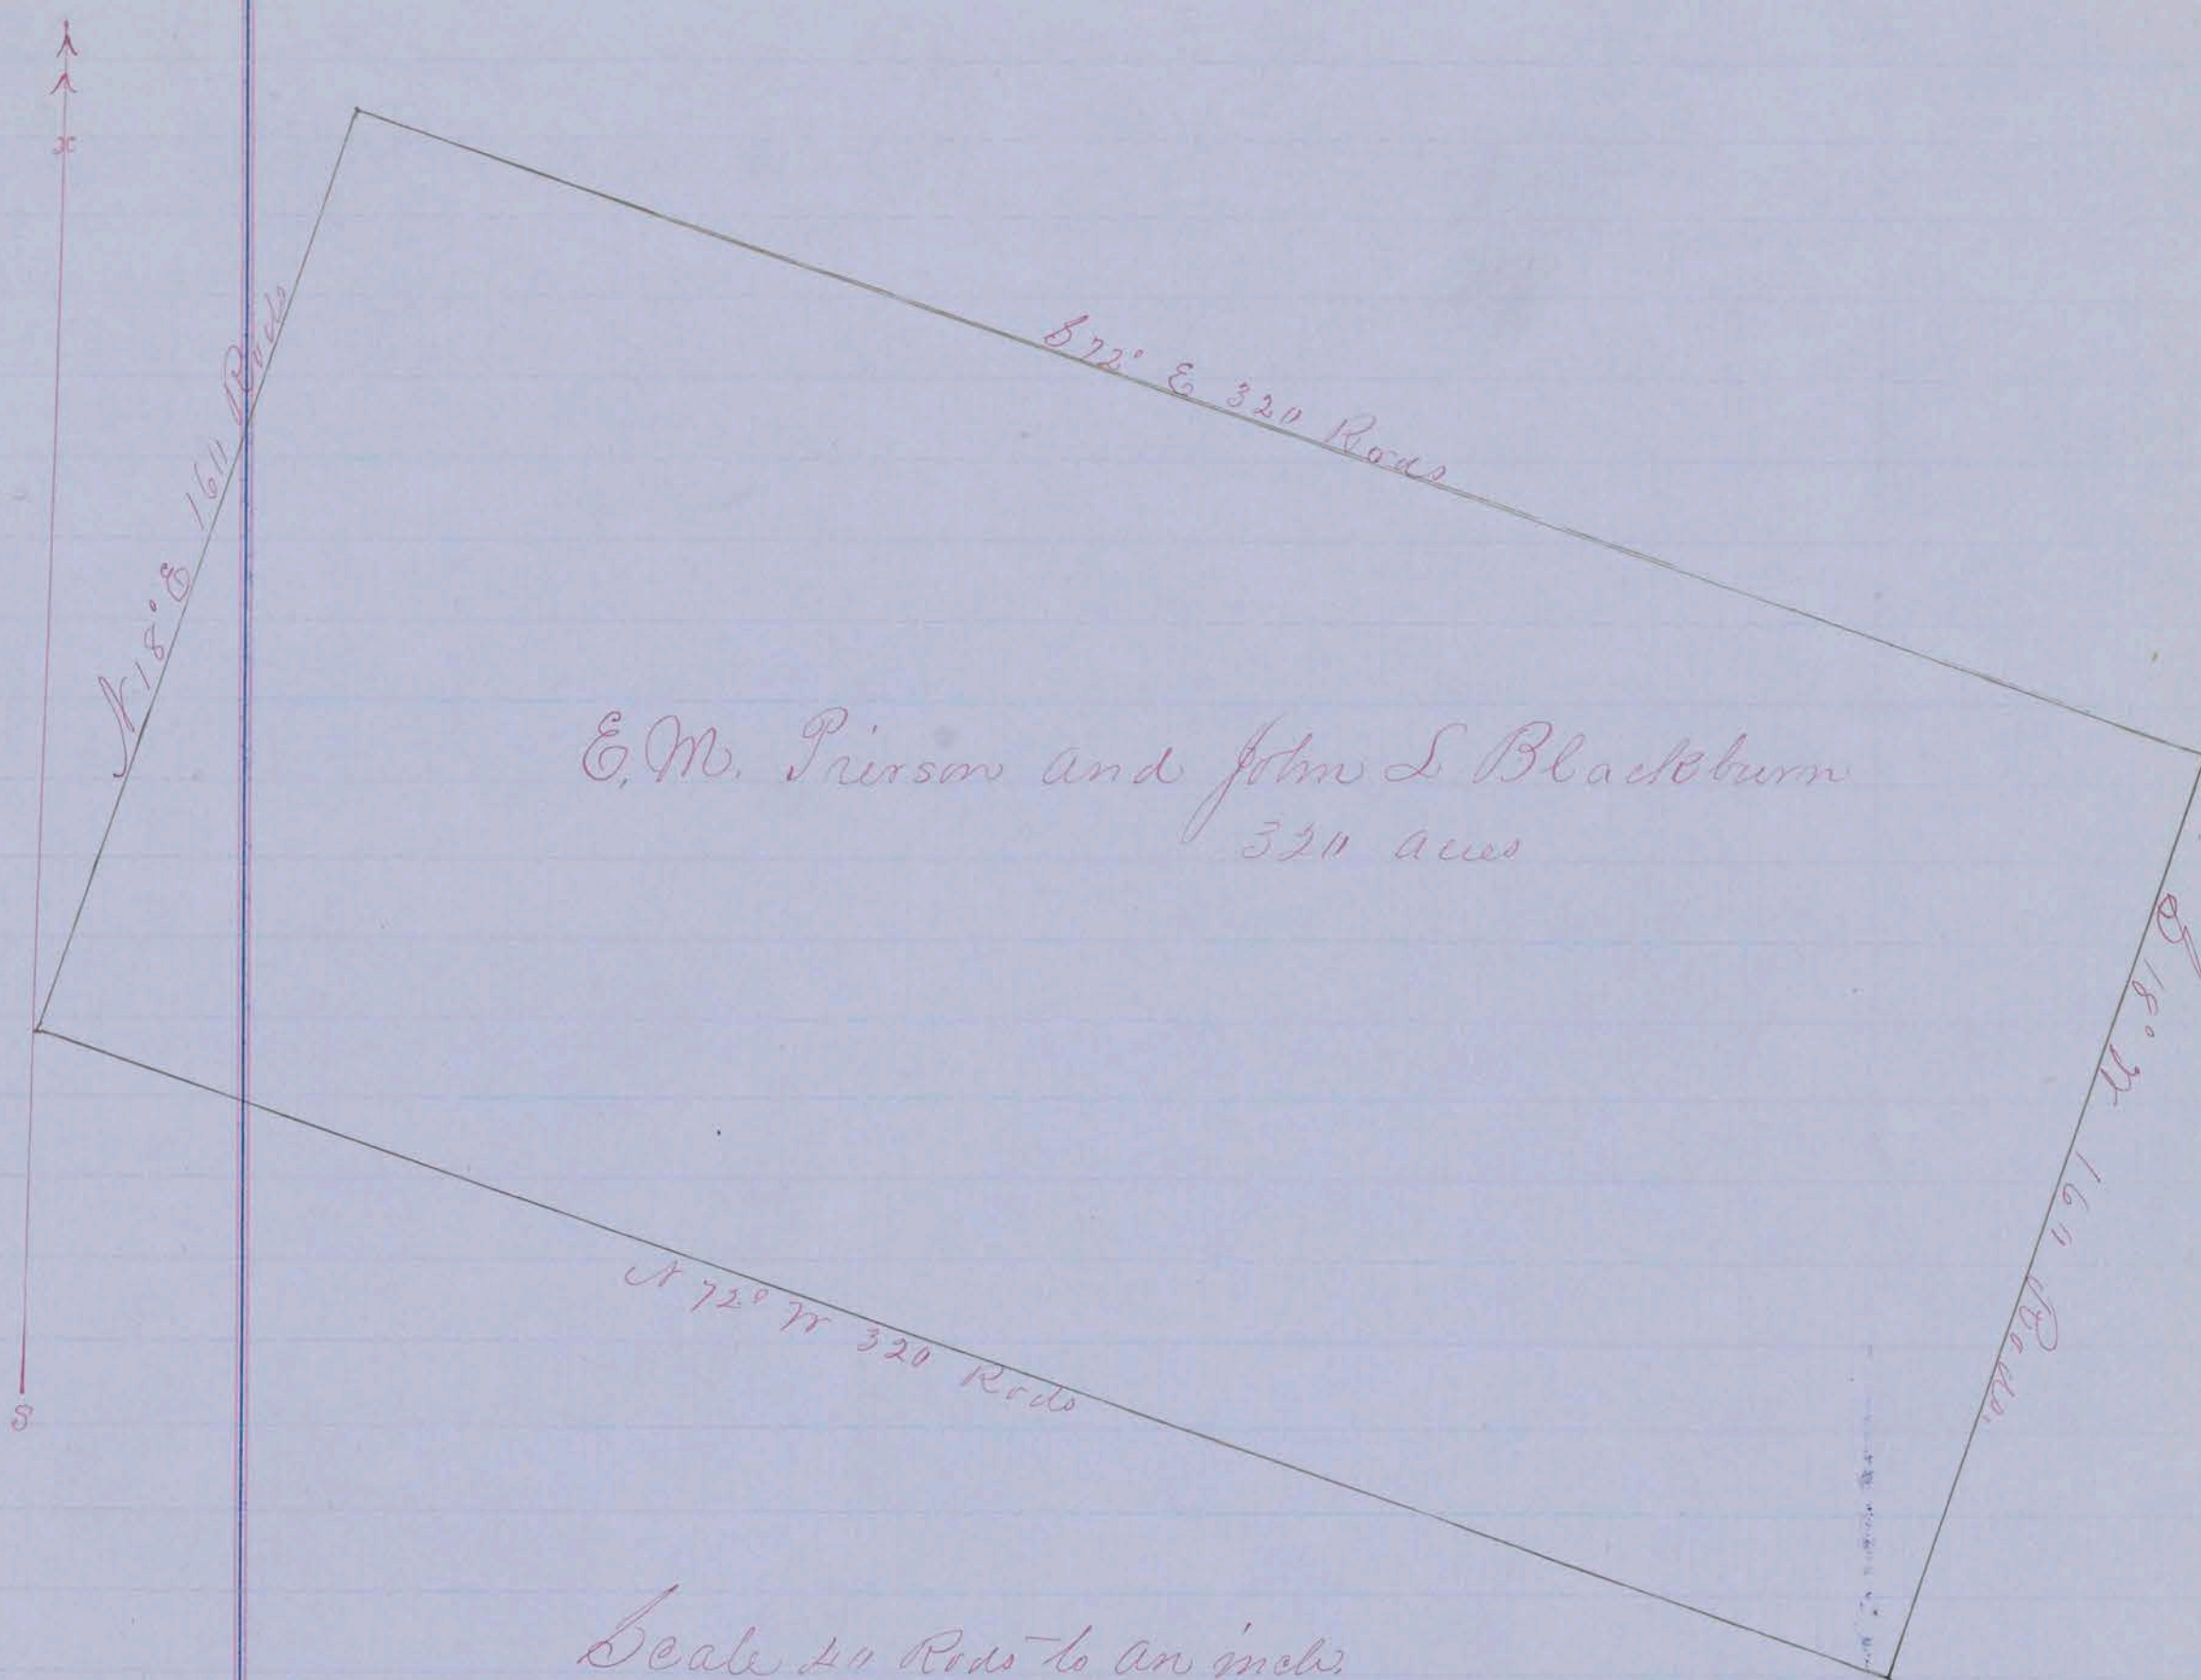 N 18° E 160 Rods
S 72° E 320 Rods
E. M. Pierson and John L Blackburn
320 acres
S 18° W 160 Rods.
N 72° W 320 Rods
S
Scale 40 Rods to an inch.